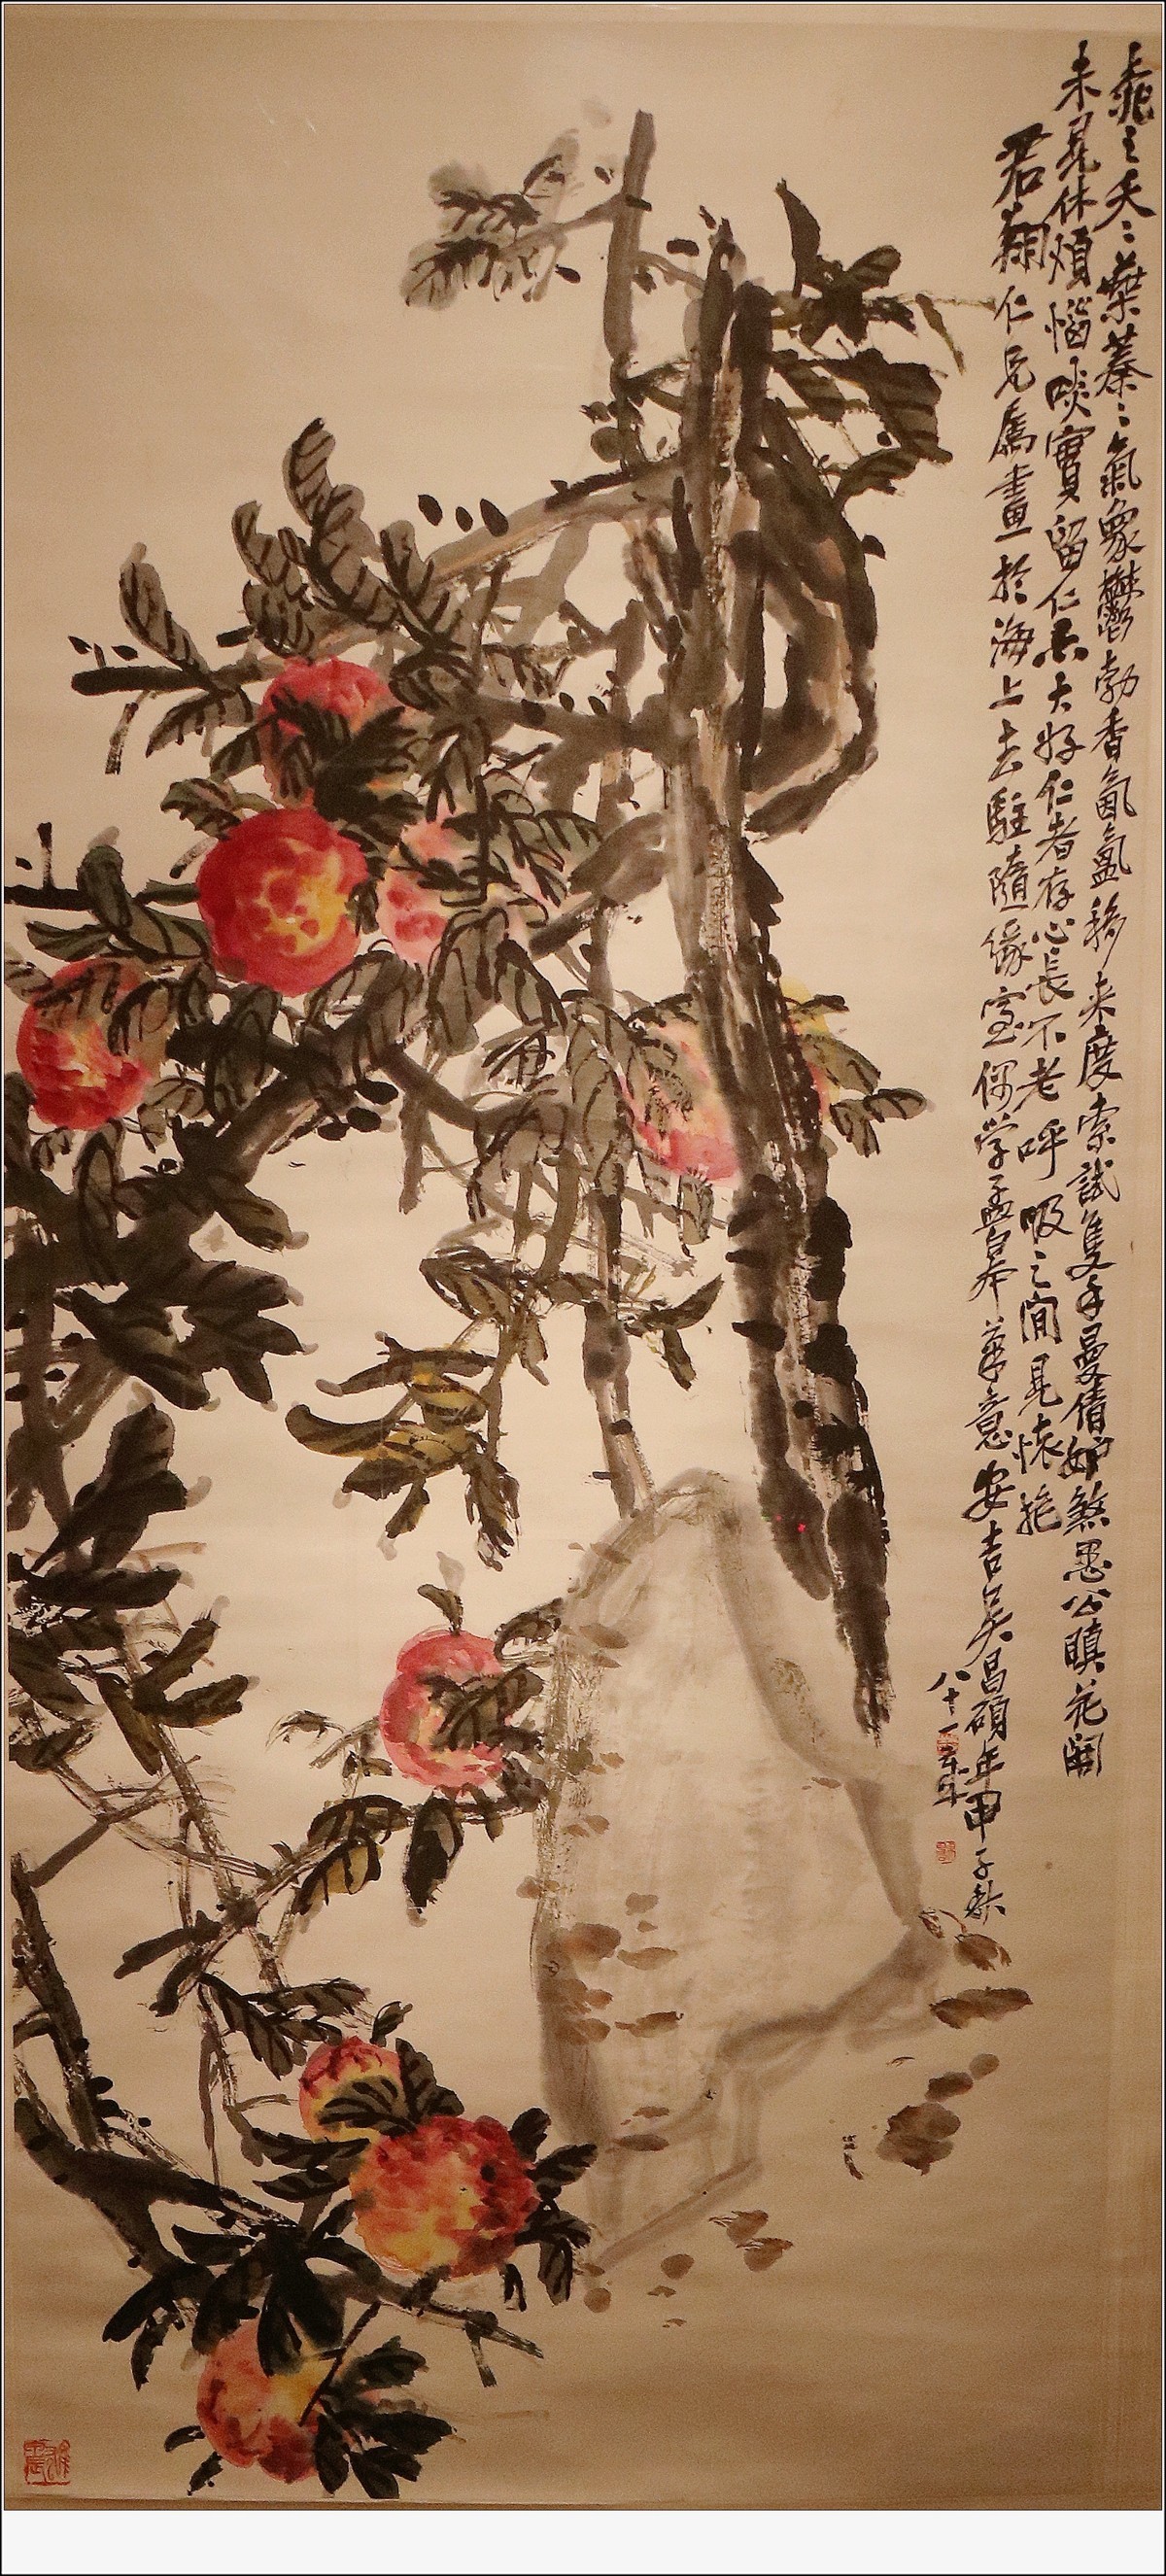 桃之夭〻葉蓁〻氣象鬱勃香氤氳移来度索試隻手曼倩妒煞愚公瞋花開
未見休煩惱啖實留仁亦大好仁者存心長不老呼吸之間見懷抱
君翔仁兄屬畫於海上去駐隨緣室偶學孟皋筆意安吉吳昌碩年甲子秋
八十一